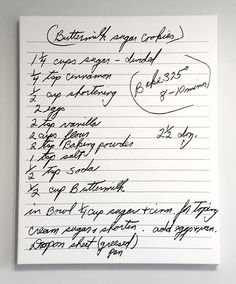 (Buttermilk sugar Cookies)
1 1/4 cups sugar - divided
1/4 tsp cinnamon
1/2 cup shortening
2 eggs
2 tsp vanilla
2 cups flour
2 tsp Baking powder
1 tsp salt
1/2 tsp soda
1/2 cup Buttermilk
Bake 375°
8-10 mins
2 1/2 doz.
in Bowl 1/4 cup sugar + cinn. for topping
cream sugar + shorten. add eggs + van.
sheet (greased)
pan